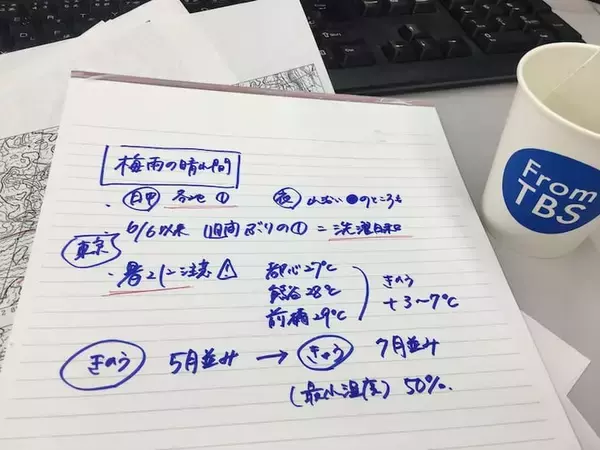 梅雨の晴れ間
日中 各地① 夜 山沿い●のところも
東京 6/6以来 1週間ぶりの① = 洗濯日和
・暑さに注意⚠
都心27℃
熊谷28℃
前橋29℃
きのう
+3〜7℃
きのう 5月並み → きょう 7月並み
(最小湿度) 50%.
From
TBS